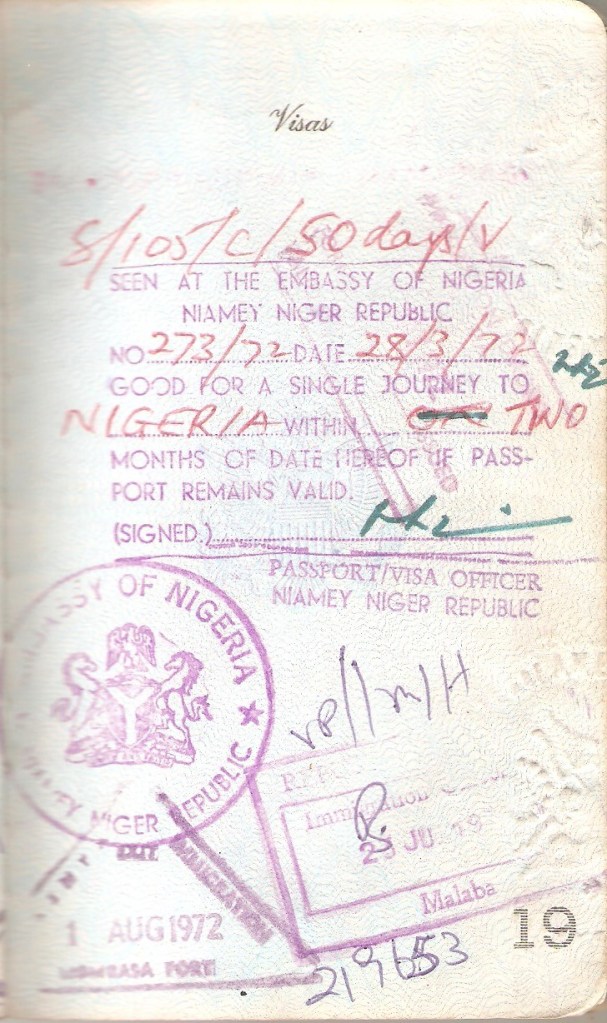 Visas
S/105/C/50 days/V
SEEN AT THE EMBASSY OF NIGERIA
NIAMEY NIGER REPUBLIC
NO 273/72 DATE 28/3/72
GOOD FOR A SINGLE JOURNEY TO
NIGERIA WITHIN TWO
MONTHS OF DATE HEREOF IF PASS-
PORT REMAINS VALID.
(SIGNED.)
PASSPORT/VISA OFFICER
NIAMEY NIGER REPUBLIC
EMBASSY OF NIGERIA
NIAMEY NIGER REPUBLIC
Immigration
JU
Malaba
EXIT
IMMIGRATION
1 AUG 1972
MOMBASA PORT
219653
19